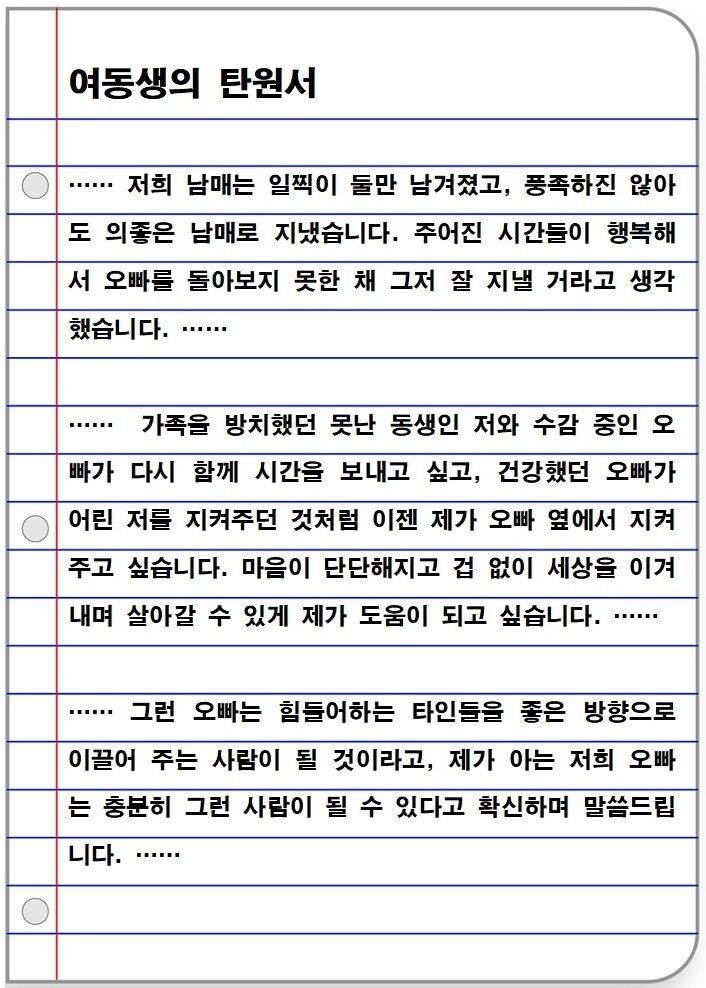 여동생의 탄원서
…… 저희 남매는 일찍이 둘만 남겨졌고, 풍족하진 않아
도 의좋은 남매로 지냈습니다. 주어진 시간들이 행복해
서 오빠를 돌아보지 못한 채 그저 잘 지낼 거라고 생각
했습니다. ……
…… 가족을 방치했던 못난 동생인 저와 수감 중인 오
빠가 다시 함께 시간을 보내고 싶고, 건강했던 오빠가
어린 저를 지켜주던 것처럼 이젠 제가 오빠 옆에서 지켜
주고 싶습니다. 마음이 단단해지고 겁 없이 세상을 이겨
내며 살아갈 수 있게 제가 도움이 되고 싶습니다. ……
…… 그런 오빠는 힘들어하는 타인들을 좋은 방향으로
이끌어 주는 사람이 될 것이라고, 제가 아는 저희 오빠
는 충분히 그런 사람이 될 수 있다고 확신하며 말씀드립
니다. ……